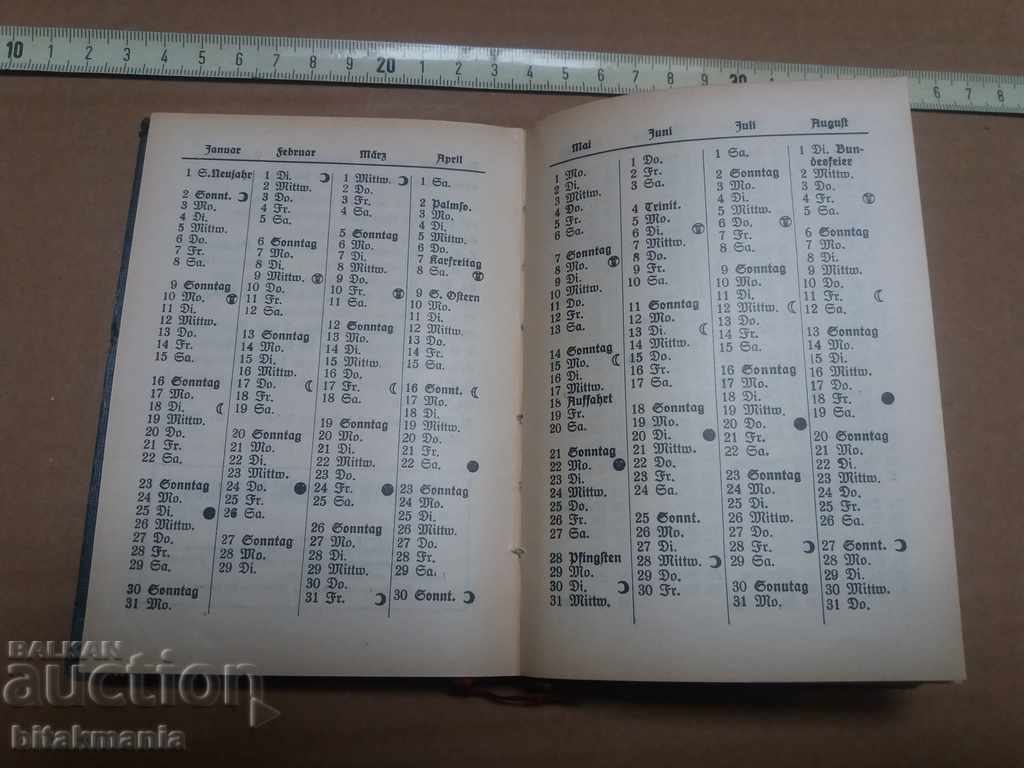 10 1 2 3 4 5 6 7 8 9 20 1 2 3 4 5 6 7 8 9 30 6 7 8
Januar
1 S. Neujahr
2 Sonnt.
3 Mo.
4 Di.
5 Mittw.
6 Do.
7 Fr.
8 Sa.
9 Sonntag
10 Mo.
11 Di.
12 Mittw.
13 Do.
14 Fr.
15 Sa.
16 Sonntag
17 Mo.
18 Di.
19 Mittw.
20 Do.
21 Fr.
22 Sa.
23 Sonntag
24 Mo.
25 Di.
26 Mittw.
27 Do.
28 Fr.
29 Sa.
30 Sonntag
31 Mo.
Februar
1 Di.
2 Mittw.
3 Do.
4 Fr.
5 Sa.
6 Sonntag
7 Mo.
8 Di.
9 Mittw.
10 Do.
11 Fr.
12 Sa.
13 Sonntag
14 Mo.
15 Di.
16 Mittw.
17 Do.
18 Fr.
19 Sa.
20 Sonntag
21 Mo.
22 Di.
23 Mittw.
24 Do.
25 Fr.
26 Sa.
27 Sonntag
28 Mo.
29 Di.
März
1 Mittw.
2 Do.
3 Fr.
4 Sa.
5 Sonntag
6 Mo.
7 Di.
8 Mittw.
9 Do.
10 Fr.
11 Sa.
12 Sonntag
13 Mo.
14 Di.
15 Mittw.
16 Do.
17 Fr.
18 Sa.
19 Sonntag
20 Mo.
21 Di.
22 Mittw.
23 Do.
24 Fr.
25 Sa.
26 Sonntag
27 Mo.
28 Di.
29 Mittw.
30 Do.
31 Fr.
April
1 Sa.
2 Palmso.
3 Mo.
4 Di.
5 Mittw.
6 Do.
7 Karfreitag
8 Sa.
9 S. Ostern
10 Mo.
11 Di.
12 Mittw.
13 Do.
14 Fr.
15 Sa.
16 Sonnt.
17 Mo.
18 Di.
19 Mittw.
20 Do.
21 Fr.
22 Sa.
23 Sonntag
24 Mo.
25 Di.
26 Mittw.
27 Do.
28 Fr.
29 Sa.
30 Sonnt.
Mai
1 Mo.
2 Di.
3 Mittw.
4 Do.
5 Fr.
6 Sa.
7 Sonntag
8 Mo.
9 Di.
10 Mittw.
11 Do.
12 Fr.
13 Sa.
14 Sonntag
15 Mo.
16 Di.
17 Mittw.
18 Auffahrt
19 Fr.
20 Sa.
21 Sonntag
22 Mo.
23 Di.
24 Mittw.
25 Do.
26 Fr.
27 Sa.
28 Pfingsten
29 Mo.
30 Di.
31 Mittw.
Juni
1 Do.
2 Fr.
3 Sa.
4 Trinit.
5 Mo.
6 Di.
7 Mittw.
8 Do.
9 Fr.
10 Sa.
11 Sonntag
12 Mo.
13 Di.
14 Mittw.
15 Do.
16 Fr.
17 Sa.
18 Sonntag
19 Mo.
20 Di.
21 Mittw.
22 Do.
23 Fr.
24 Sa.
25 Sonnt.
26 Mo.
27 Di.
28 Mittw.
29 Do.
30 Fr.
Juli
1 Sa.
2 Sonntag
3 Mo.
4 Di.
5 Mittw.
6 Do.
7 Fr.
8 Sa.
9 Sonntag
10 Mo.
11 Di.
12 Mittw.
13 Do.
14 Fr.
15 Sa.
16 Sonntag
17 Mo.
18 Di.
19 Mittw.
20 Do.
21 Fr.
22 Sa.
23 Sonntag
24 Mo.
25 Di.
26 Mittw.
27 Do.
28 Fr.
29 Sa.
30 Sonntag
31 Mo.
August
1 Di. Bun-
desfeier
2 Mittw.
3 Do.
4 Fr.
5 Sa.
6 Sonntag
7 Mo.
8 Di.
9 Mittw.
10 Do.
11 Fr.
12 Sa.
13 Sonntag
14 Mo.
15 Di.
16 Mittw.
17 Do.
18 Fr.
19 Sa.
20 Sonntag
21 Mo.
22 Di.
23 Mittw.
24 Do.
25 Fr.
26 Sa.
27 Sonnt.
28 Mo.
29 Di.
30 Mittw.
31 Do.
BALKAN
auction
bitakmania